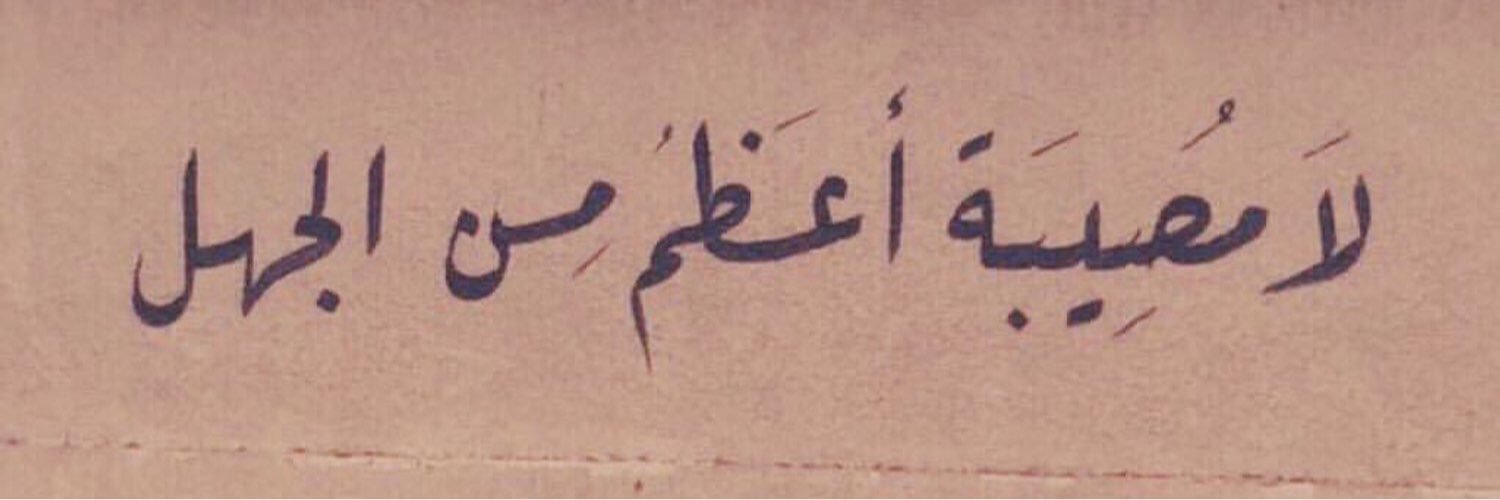 لَا مُصِيبَة أعظَمُ مِن الجهل